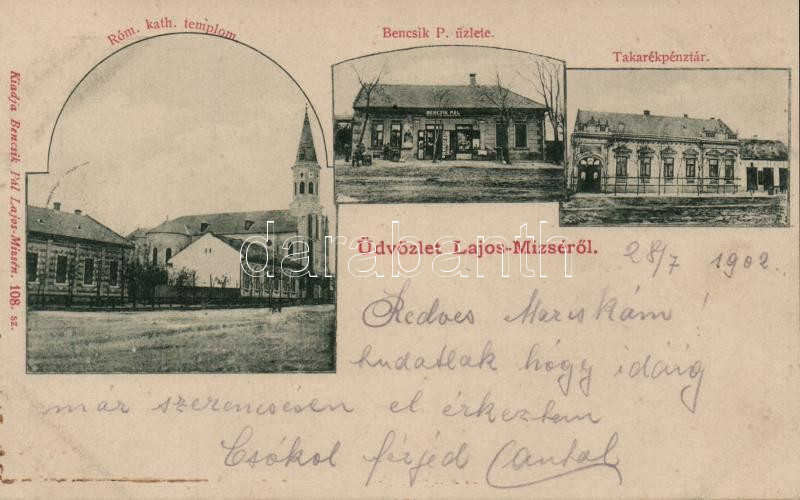 Róm. kath. templom
Bencsik P. üzlete.
Takarékpénztár.
BENCSIK PÁL
Kiadja Bencsik Pál Lajos-Mizsén. 108. sz.
darabanth
Üdvözlet Lajos-Mizséről.
28/7 1902.
Kedves Mariskám!
tudatlak hogy idáig
már szerencsésen el érkeztem
Csókol férjed Antal